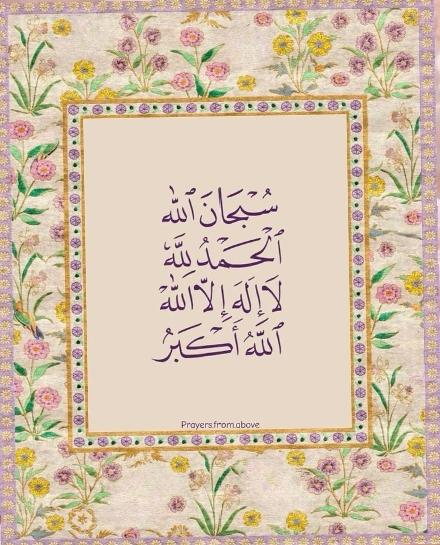 سُبْحَانَ ٱللّٰه
ٱلْحَمْدُ لِلّٰه
لَا إِلَهَ إِلّا ٱللّٰه
ٱللّٰهُ أَكْبَرُ
Prayers.from.above